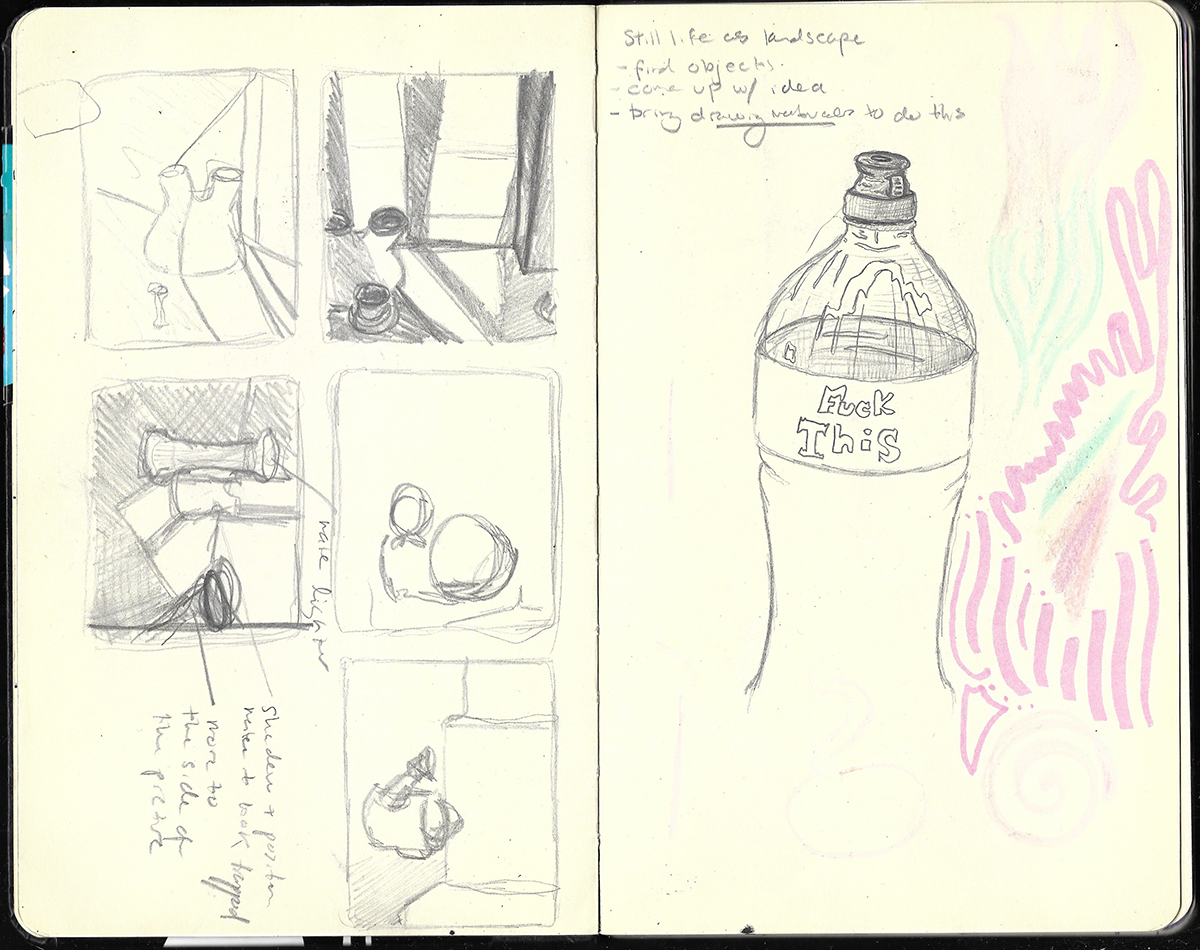 make lighter
Shadow + position
make to look trapped
move to
the side of
the picture
Still life as landscape
- find objects.
- come up w/ idea
- bring drawing materials to do this
Fuck
This